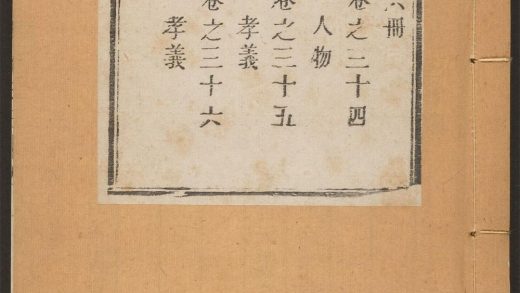 冊
卷之三十四
人物
卷之三十五
孝義
卷之三十六
孝義